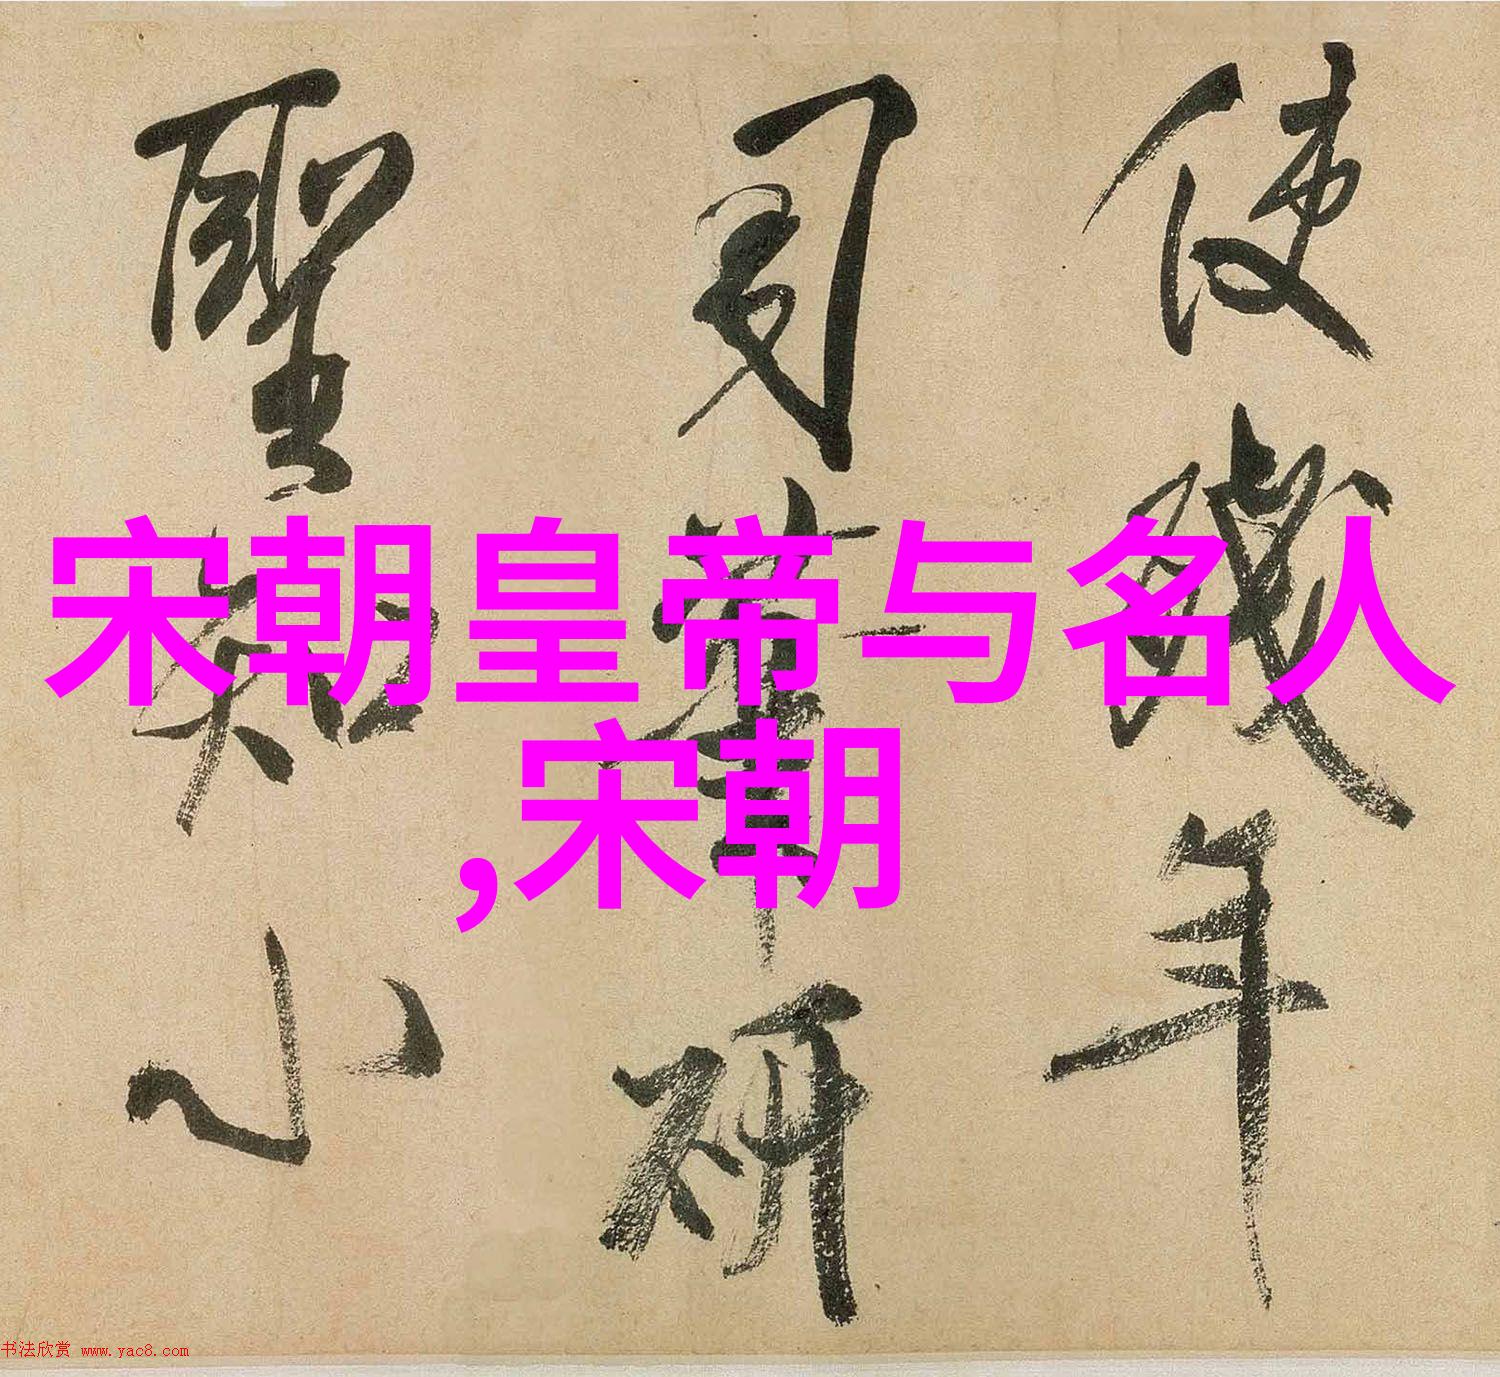 使殘年
司筆研
聖知小
宋朝皇帝与名人
,宋朝
书法欣赏 www.yac8.com